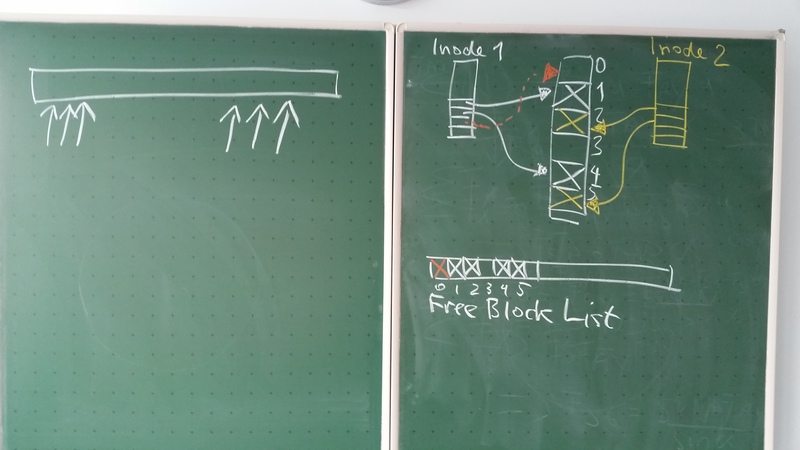 Inode 1
Inode 2
0
1
2
3
4
5
0 1 2 3 4 5
Free Block List